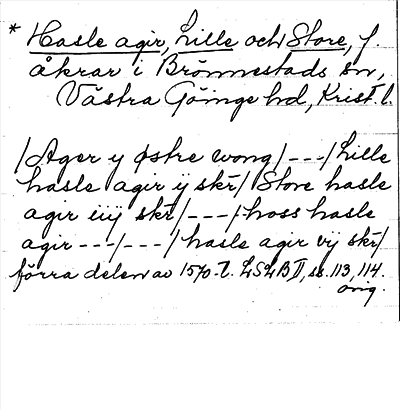 * Hasle agir, Lille och Store, f.
åkrar i Brönnestads sn,
Västra Göinge hd, Krist. l.
/Ager y østre wong/---/Lille
hasle agir ÿ skr/ Store hasle
agir iiÿ skr/---/hoss hasle
agir ---/---/hasle agir vÿ skr/
förra delen av 1570-t. LSLB II, ss. 113, 114.
orig.